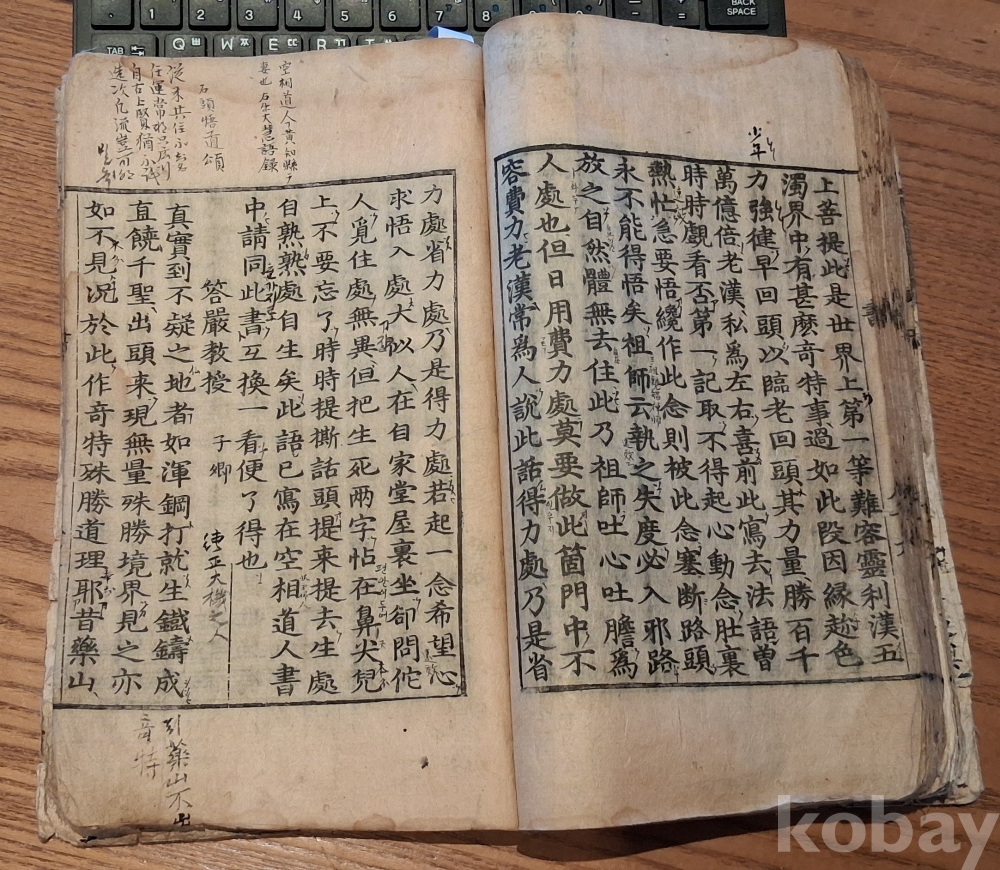 上菩提此是世界上第一等難容靈利漢五
濁界中有甚麽奇特事過如此段因緣趂色
力強健早回頭以臨老回頭其力量勝百千
萬億倍老漢私爲左右喜前此寫去法語曾
時時覷看否第一記取不得起心動念肚裏
熱忙急要悟纔作此念則被此念塞斷路頭
永不能得悟矣祖師云執之失度必入邪路
放之自然體無去住此乃祖師吐心吐膽爲
人處也但日用費力處莫要做此箇門中不
容費力老漢常爲人說此話得力處乃是省
少年
力處省力處乃是得力處若起一念希望心
求悟入處大似人在自家堂屋裏坐却問佗
人覓住處無異但把生死兩字帖在鼻尖兒
上不要忘了時時提撕話頭提來提去生處
自熟熟處自生矣此語已寫在空相道人書
中請同此書互換一看便了得也
答嚴教授 子卿
真實到不疑之地者如渾鋼打就生鐵鑄成
直饒千聖出頭來現無量殊勝境界見之亦
如不見況於此作奇特殊勝道理耶昔藥山
空相道人黃知縣
妻也 大慧語錄
石頭悟道頌
從來共住不知名
任運常
自古上賢猶不識
造次凡流豈可明
引藥山不出
奇特
BACK
SPACE
TAB
Q
W
E
R
3
4
5
6
7
8
9
0
kobay